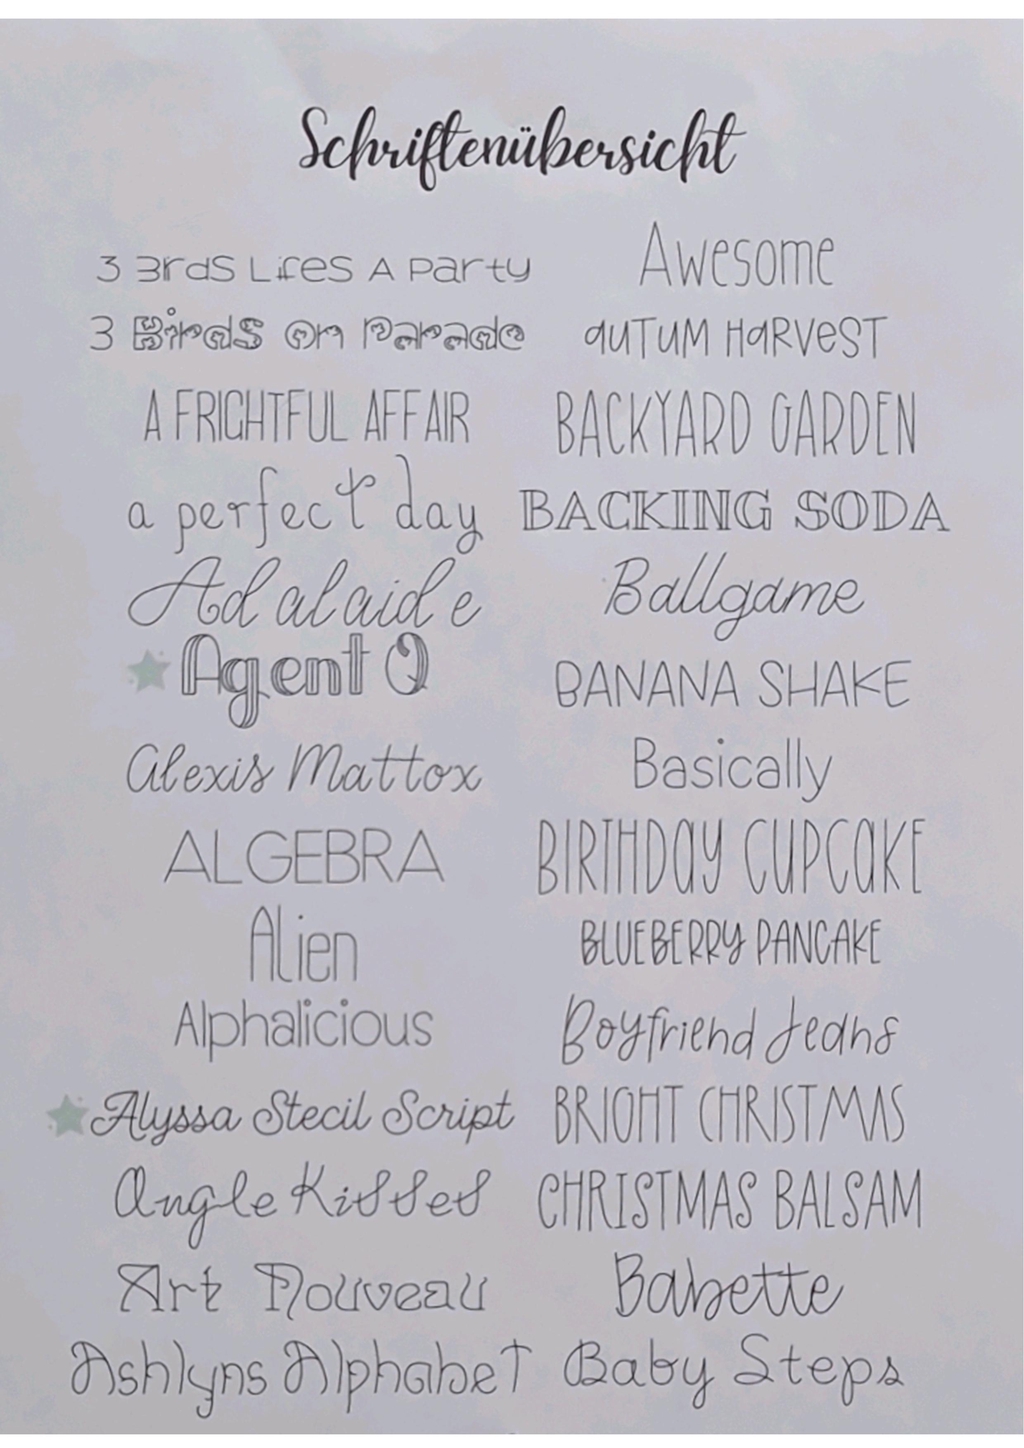 Schriftenübersicht
3 3rds Lifes A Party
3 Birds on Parade
A FRIGHTFUL AFFAIR
a perfect day
Adalaide
Agent Q
Alexis Mattox
ALGEBRA
Alien
Alphalicious
Alyssa Stecil Script
Angle Kisses
Art Nouveau
Ashlyns Alphabet
Awesome
AUTUM HARVEST
BACKYARD GARDEN
BACKING SODA
Ballgame
BANANA SHAKE
Basically
BIRTHDAY CUPCAKE
BLUEBERRY PANCAKE
Boyfriend Jeans
BRIGHT CHRISTMAS
CHRISTMAS BALSAM
Babette
Baby Steps